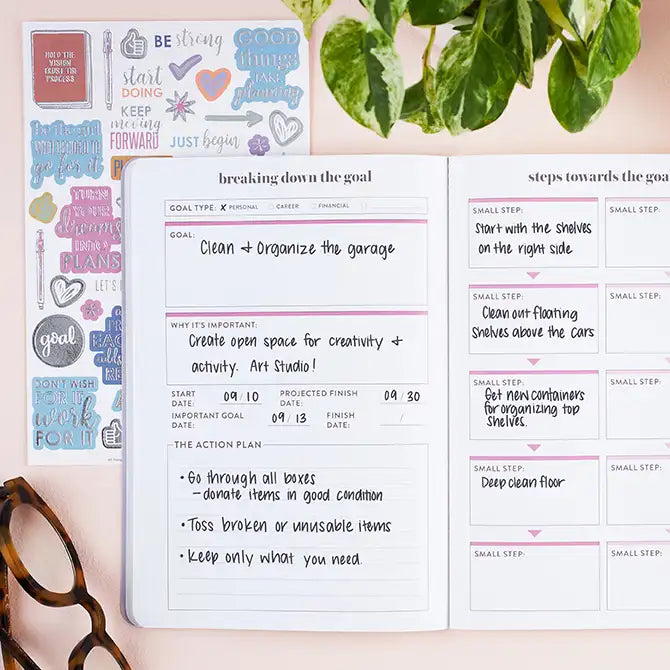 HOLD
THE VISION
TRUST THE
PROCESS
BE strong
GOOD
things
TAKE
planning
start
DOING
KEEP
moving
FORWARD
JUST begin
be the girl
WHO DECIDED TO
go for it
TURN
YOUR
dreams
INTO
PLANS
LET'S
goal
DON'T WISH
FOR IT
work
FOR IT
breaking down the goal
GOAL TYPE: X PERSONAL CAREER FINANCIAL
GOAL:
Clean + Organize the garage
WHY IT'S IMPORTANT:
Create open space for creativity +
activity. Art Studio!
START DATE: 09/10 PROJECTED FINISH DATE: 09/30
IMPORTANT GOAL DATE: 09/13 FINISH DATE: /
THE ACTION PLAN
• Go through all boxes
– donate items in good condition
• Toss broken or unusable items
• Keep only what you need.
steps towards the goa
SMALL STEP:
Start with the shelves
on the right side
SMALL STEP:
Clean out floating
shelves above the cars
SMALL STEP:
Get new containers
for organizing top
shelves.
SMALL STEP:
Deep clean floor
SMALL STEP:
SMALL STEP:
SMALL STEP:
SMALL STEP:
SMALL STEP:
SMALL STEP: